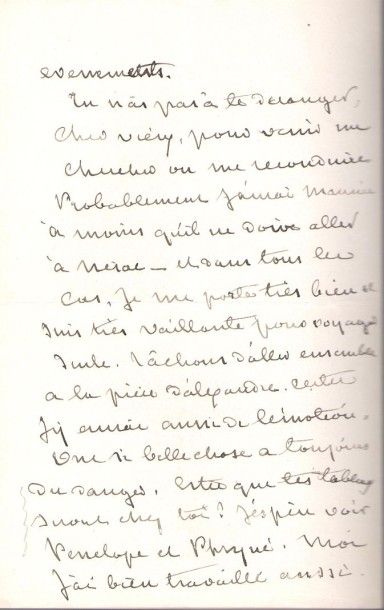 evenements.
Tu n'as pas à te deranger,
cher vieux, pour venir me
chercher ou me reconduire
Probablement j'aurai Maurice
à moins qu'il ne doive aller
à Nerac — et dans tous les
cas, je me porte très bien et
suis très vaillante pour voyager
seule. Tâchons d'aller ensemble
a la pièce d'alexandre.
J'y aurai aussi de l'émotion.
Une si belle chose a toujours
du danger. Estce que tes tableaux
seront chez toi? J'espère voir
Penelope et Phryné. Moi
j'ai bien travaillé aussi.